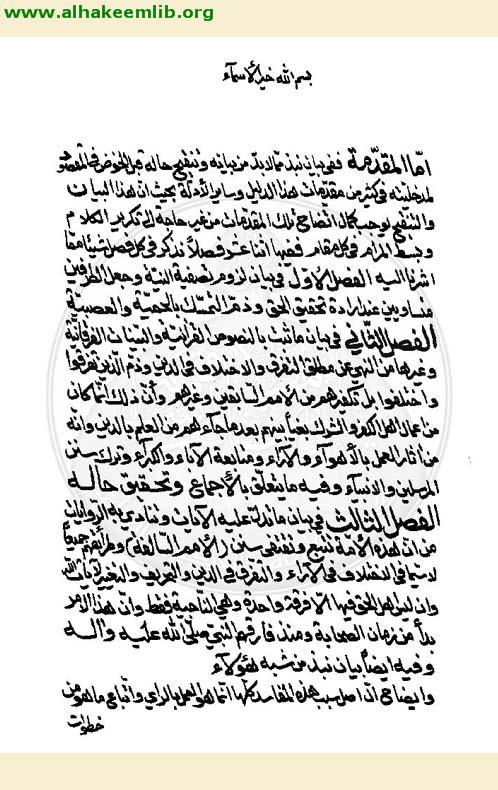 www.alhakeemlib.org
بسم الله خير الأسماء
اما المقدمة ففي بيان نبذ مما لابد من بيانه وتنقيح حاله قبل الخوض في المقصود
لمدخليته في كثير من مقدمات هذا الدليل وساير الأدلة بحيث ان هذا البيان
والتنقيح يوجب كمال اتضاح تلك المقدمات من غير حاجة الى تكرير الكلام
وبسط المرام في كل مقام ففيها اثنا عشر فصلاً نذكر في كل فصل شيئا مما
اشرنا اليه الفصل الاول في بيان لزوم تصفية النية وجعل الطرفين
متساويين عند ارادة تحقيق الحق وذم التمسك بالحمية والعصبية
الفصل الثاني في بيان ما ثبت بالنصوص القرآنية والبينات الفرقانية
وغيرها من النهي عن مطلق التفرق والاختلاف في الدين وذم الذين تفرقوا
واختلفوا بل تكفيرهم من الأمم السابقين وغيرهم وأن ذلك انما كان
من اعمال اهل الكفر والشرك بغياً بينهم بعد ما جاءهم من العلم بالدين وانه
من آثار العمل بالأهواء والآراء ومتابعة الآباء والكبراء وترك سنن
المرسلين والانبياء وفيه ما يتعلق بالأجماع وتحقيق حاله
الفصل الثالث في بيان ما تدل عليه الآيات وتنادي به الروايات
من ان هذه الامة تتبع وتقتفي سنن (الأمم السالفة) وطرائقهم جميعاً
لا سيما في الاختلاف في الآراء والتفرق في الدين والتحريف والتغيير لآيات الله
وان ليس اهل الحق فيها الا فرقة واحدة وهي الناجية فقط وان هذا الامر
بدأ من زمان الصحابة ومنذ فارقهم النبي صلى الله عليه وآله
وفيه ايضاً بيان نبذ من شبه هؤلاء
وايضاح ان اصل سبب هذه المفاسد كلها انما هو العمل بالرأي واتباع ما هو من
خطوات